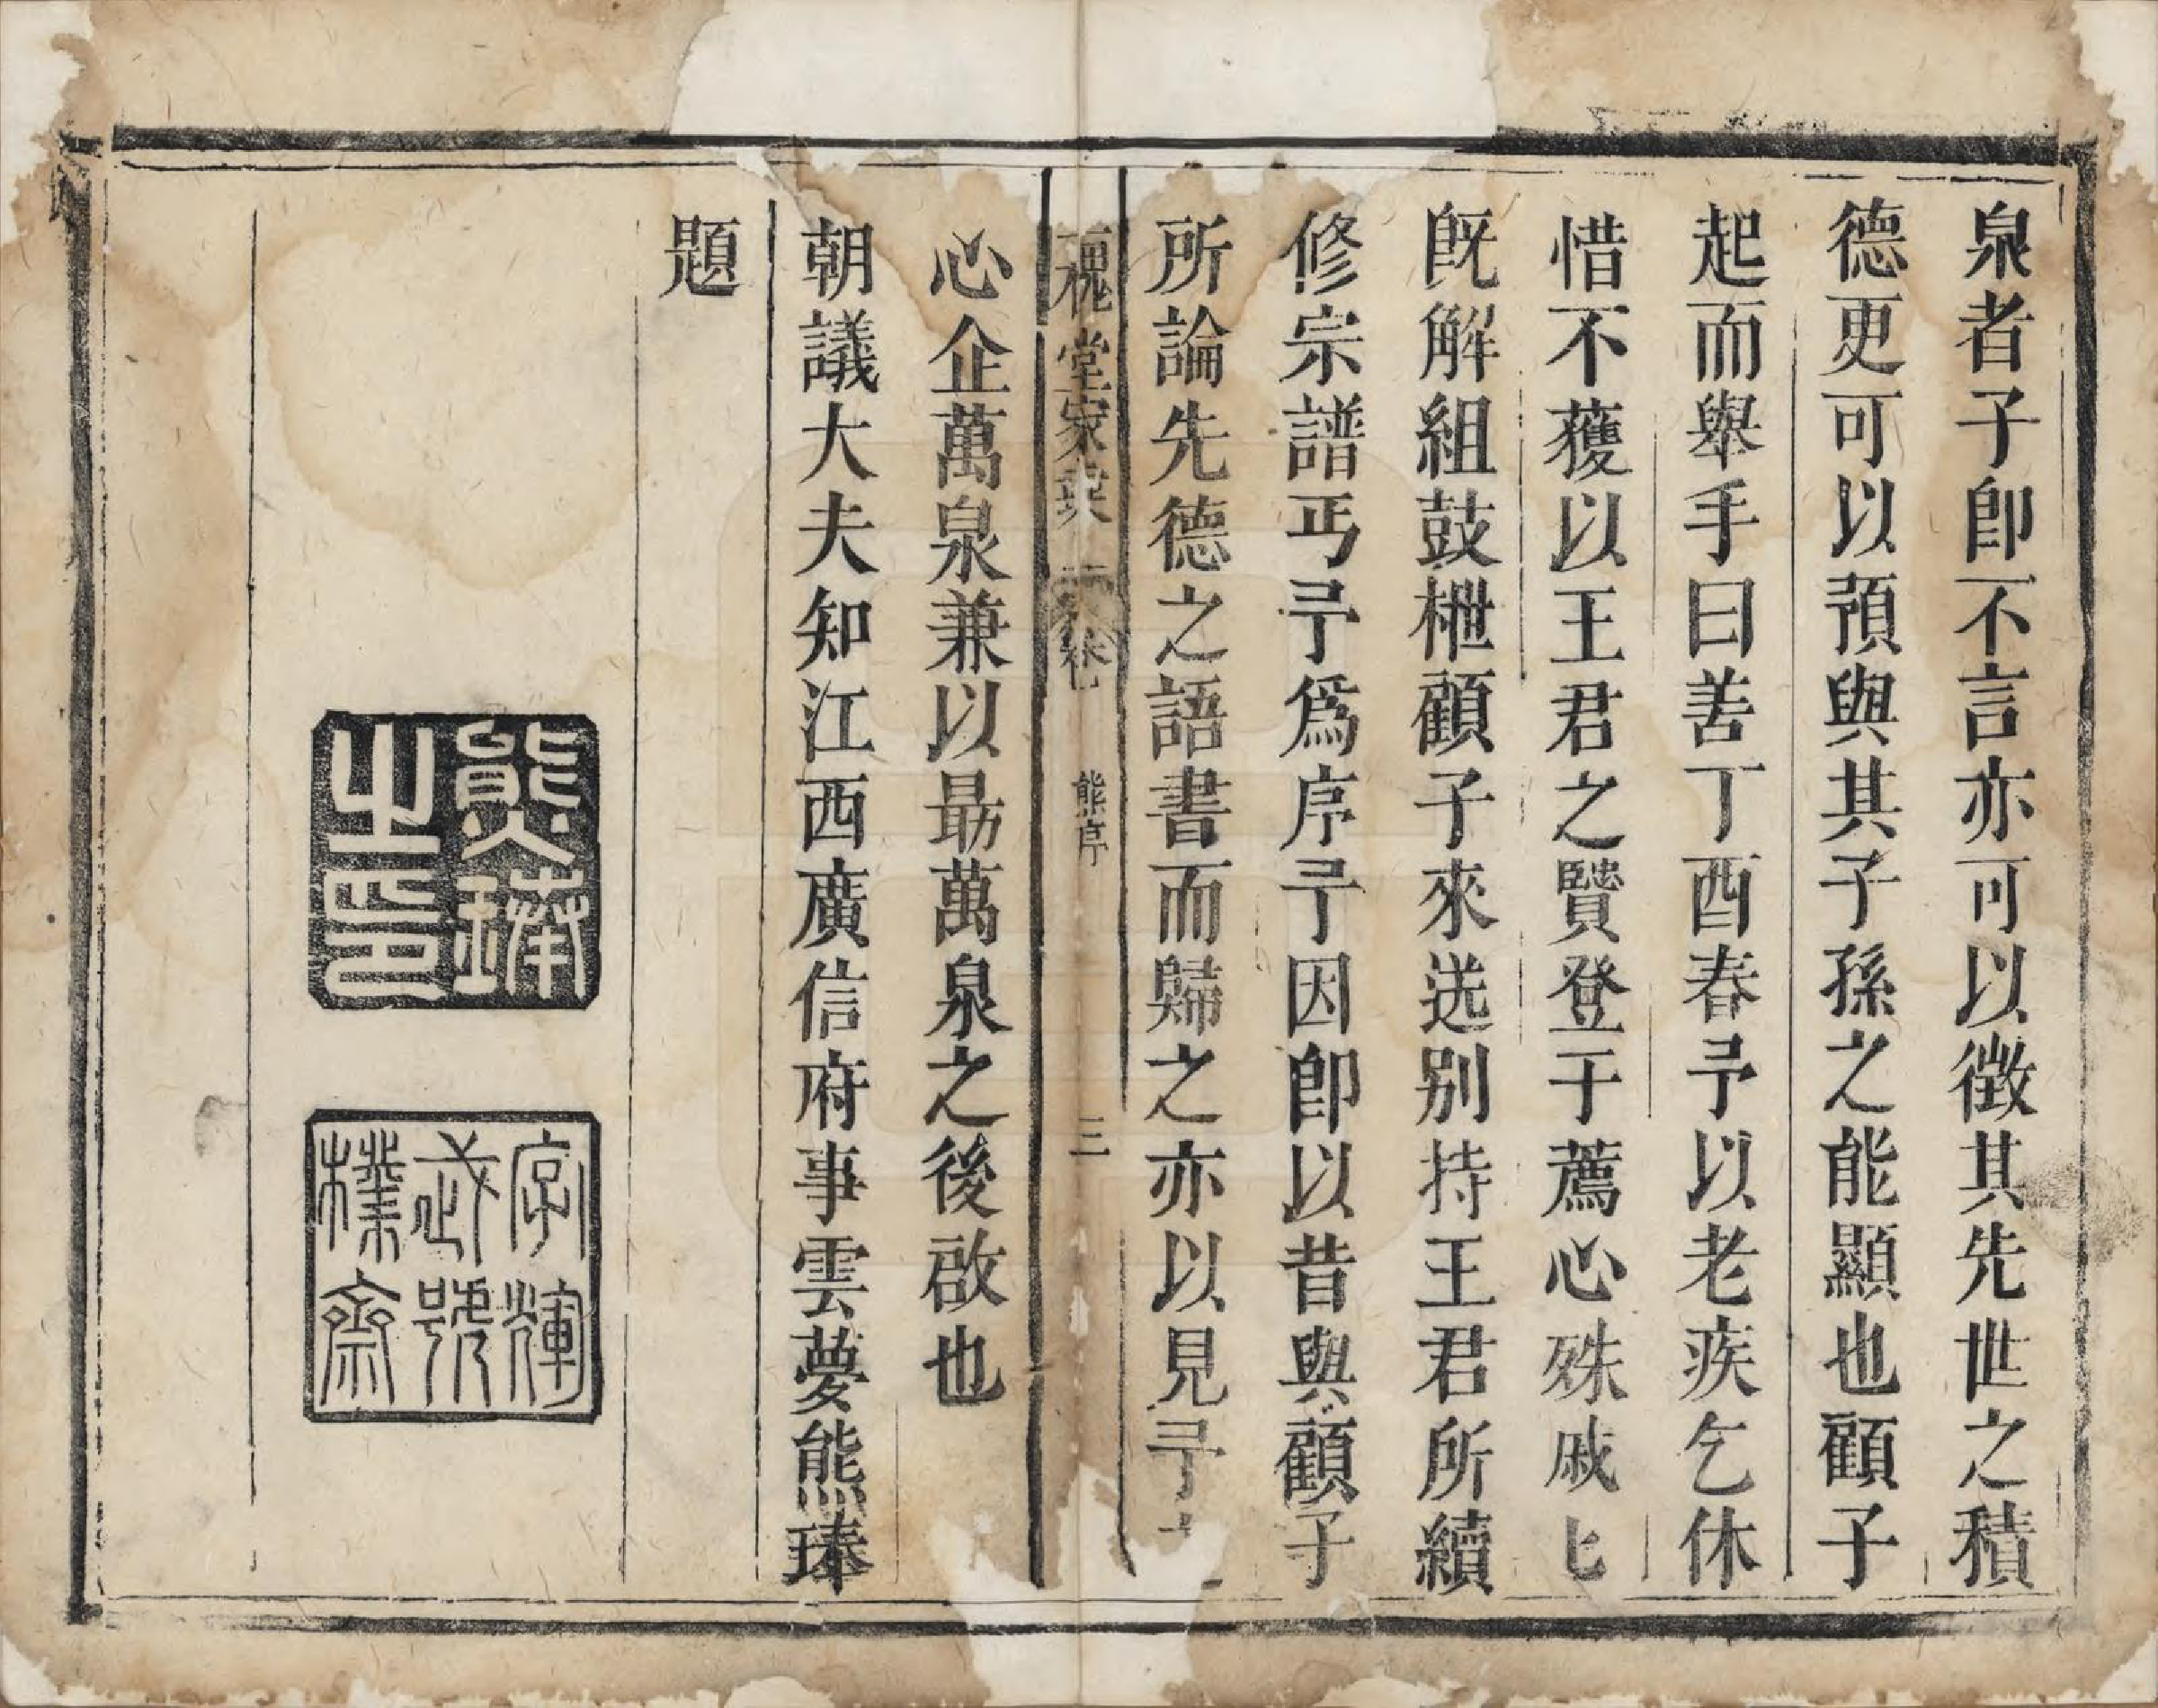 泉者子卽不言亦可以徵其先世之積
德更可以預與其子孫之能顯也顧子
起而舉手曰善丁酉春予以老疾乞休
惜不獲以王君之賢登于薦心殊戚匕
旣解組鼓枻顧子來送别持王君所續
修宗譜丐予爲序予因卽以昔與顧子
所論先德之語書而歸之亦以見予
心企萬泉兼以朂萬泉之後啟也
朝議大夫知江西廣信府事雲夢熊瑧
題
槐堂家
卷七
熊序
三
熊瑧之印
字輝武號樸齋